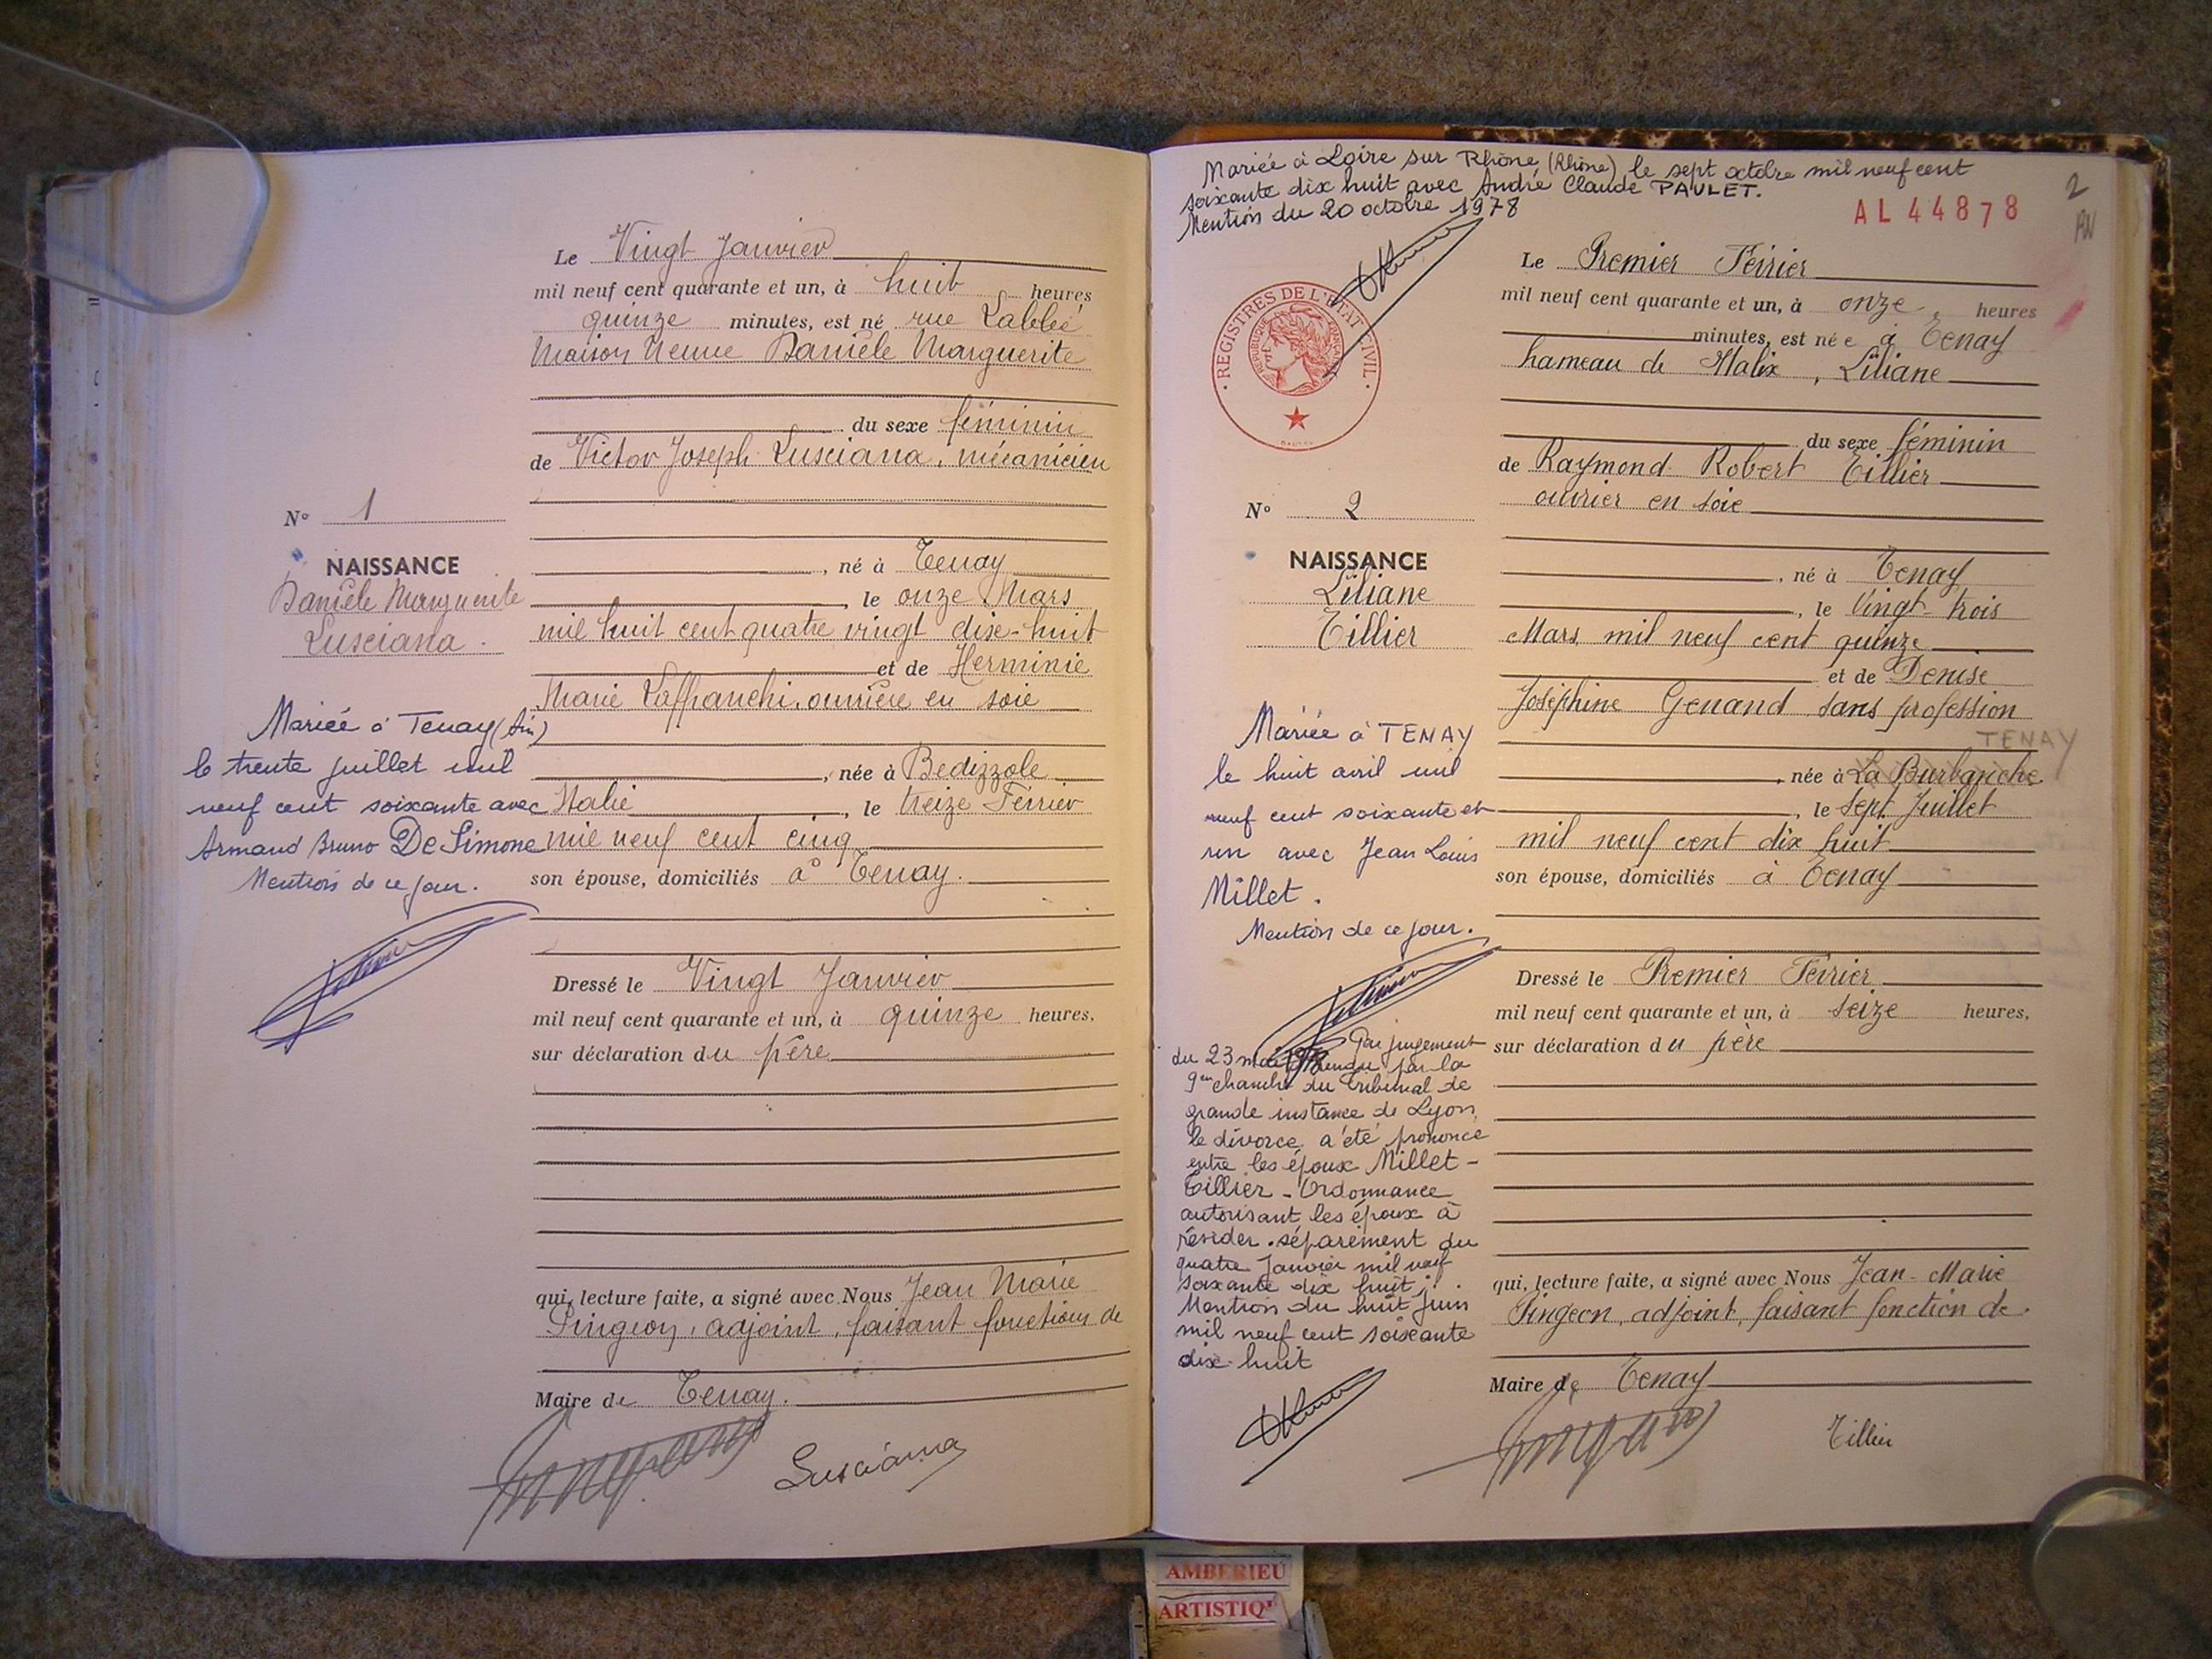 Le Vingt Janvier
mil neuf cent quarante et un, à huit heures
quinze minutes, est né rue Labbé
Maison Neuve Danièle Marguerite
du sexe féminin
de Victor Joseph Lusciana, mécanicien
N° 1
NAISSANCE
Danièle Marguerite
Lusciana.
, né à Tenay
, le onze Mars
mil huit cent quatre vingt dix-huit
et de Herminie
Marie Laffranchi, ouvrière en soie
, née à Bedizzole
Italie, le treize Février
mil neuf cent cinq
son épouse, domiciliés à Tenay.
Mariée à Tenay (Ain)
le trente juillet mil
neuf cent soixante avec
Armand Bruno De Simone
Mention de ce jour.
Dressé le Vingt Janvier
mil neuf cent quarante et un, à quinze heures,
sur déclaration du père
qui, lecture faite, a signé avec Nous Jean Marie
Pingeon, adjoint, faisant fonction de
Maire de Tenay.
Lusciana
Mariée à Loire sur Rhône (Rhône) le sept octobre mil neuf cent
soixante dix huit avec André Claude PAULET.
Mention du 20 octobre 1978
AL 44878
2
REGISTRES DE L'ETAT CIVIL
Le Premier Février
mil neuf cent quarante et un, à onze heures
minutes, est née à Tenay
hameau de Malix, Liliane
du sexe féminin
de Raymond Robert Tillier
ouvrier en soie
N° 2
NAISSANCE
Liliane
Tillier
, né à Tenay
, le Vingt-trois
Mars mil neuf cent quinze
et de Denise
Joséphine Genand sans profession
TENAY
, née à La Burbanche
, le sept Juillet
mil neuf cent dix huit
son épouse, domiciliés à Tenay
Mariée à TENAY
le huit avril mil
neuf cent soixante et
un avec Jean Louis
Millet.
Mention de ce jour.
Par jugement
du 23 mai rendu par la
9em chambre du Tribunal de
grande instance de Lyon,
le divorce a été prononcé
entre les époux Millet-
Tillier - Ordonnance
autorisant les époux à
résider séparément du
quatre Janvier mil neuf
soixante dix huit.
Mention du huit juin
mil neuf cent soixante
dix-huit
Dressé le Premier Février
mil neuf cent quarante et un, à seize heures,
sur déclaration du père
qui, lecture faite, a signé avec Nous Jean-Marie
Pingeon, adjoint, faisant fonction de
Maire de Tenay
Tillier
AMBERIEU
ARTISTIQ